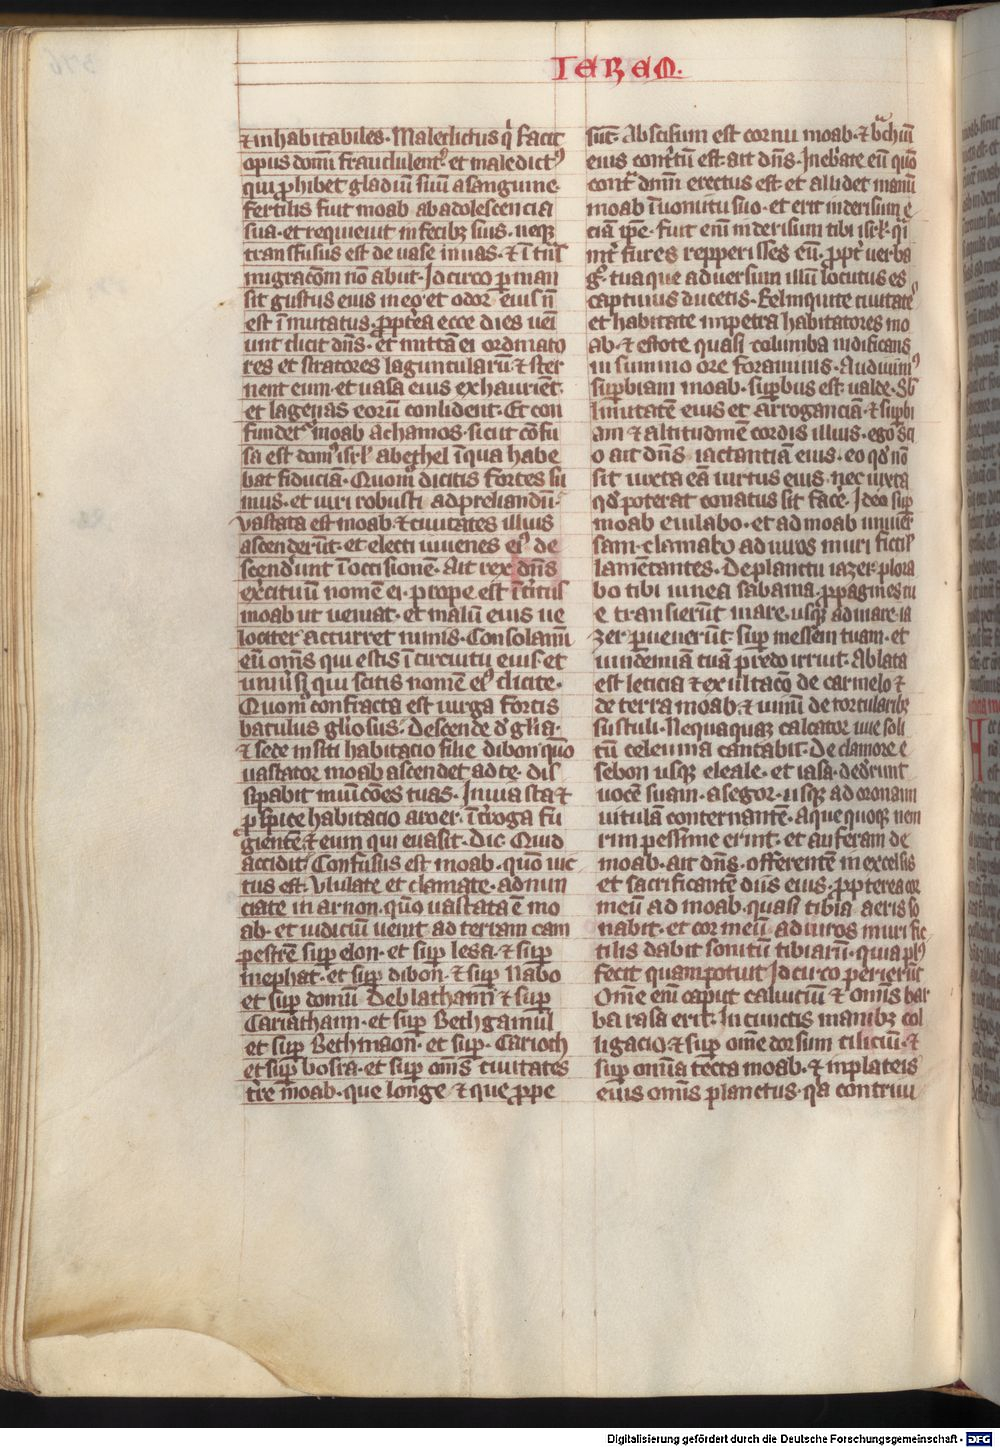 IEREM.
⁊ inhabitabiles. Maledictus q̇ facit
opus domī fraudulentꝰ et maledictꝰ
qui ꝓhibet gladiū suū a sanguine
fertilis fuit moab ab adolescencia
sua. et requieuit in fecibꝫ suis. neqꝫ
transfusus est de uase in uas. ⁊ ī tn̄s
migracōm nō abiit. Idcirco ꝑman
sit gustus eius in eo. et odor eius n̄
est īmutatus. ꝓpt̄ea ecce dies ueī
unt dicit dn̄s. et mittā ei ordinato
res et stratores laguncularū ⁊ ster
nent eum. et uasa eius exhauriēt.
et lagenas eorū conlident. Et con
fundetᷣ moab a chamos. sicut cōfu
sa est domꝰ isrl̓ a bethel ī qua habe
bat fiduciā. Quom̊ dicitis fortes su
mus. et uiri robusti ad preliandū.
Vastata est moab. ⁊ ciuitates illius
ascenderūt. et electi iuuenes eiꝰ de
scend̓unt ī occisionē. Ait rex dn̄s
exercituū nomē ei. ꝓ prope est īt̓itus
moab ut ueniat. et malū eius ue
lociter accurret nimis. Consolamī
eū om̄s qui estis ī circuitu eius. et
uniūsi qui scitis nomē eiꝰ dicite.
Quom̊ confracta est uirga fortis
baculus gl̓iosus. Descende d̓ gl̓ia.
⁊ sede in siti habitacio filie dibon quō
uastator moab ascendet ad te. dis
sipabit municōes tuas. In uia sta ⁊
ꝓspice habitacio aroer. īt̓roga fu
gientē. ⁊ eum qui euasit. Dic. Quid
accidit. Confusus est moab. quō uic
tus est. Vlulate et clamate. adnun
ciate in arnon. quō uastata ē mo
ab. et iudiciū uenit ad terram cam
pestrē. suꝑ elon. et suꝑ iesa. ⁊ suꝑ
mephat. et suꝑ dibon. ⁊ suꝑ Nabo
et suꝑ domū Deblathaim ⁊ suꝑ
Cariathaim. et suꝑ Bethgamul
et suꝑ Bethmaon. et suꝑ. Carioth
et suꝑ bosra. et suꝑ om̄s ciuitates
tr̄e moab. que longe ⁊ que ꝓpe
sūt. Abscisum est cornu moab. ⁊ b̾chiū
eius contritū est. ait dn̄s. Inebriate eū quō
cont̾ dnm̄ erectus est. et allidet manū
moab ī uomitu suo. et erit in derisum e
ciā ip̄e. Fuit enī in derisum tibi isrl̓. q̇i
int̓ fures repperisses eū. ꝓpt̓ uerba
gͦ. tua que aduersum illū locutus es
captiuus duceris. Relinquite ciuitateˢ
et habitate in petra habitatores mo
ab. ⁊ estote quasi columba nidificans
in summo ore foraminis. Audiuimꝰ
suꝑbiam moab. suꝑbus est ualde. Sb̓
limitatē eius et arroganciā. ⁊ suꝑbi
am ⁊ altitudinē cordis illius. ego sci
o ait dn̄s. iactantiā eius. eo qd̓ nō
sit iuxta eā uirtus eius. nec iuxta
qd̓ poterat conatus sit fac̓e. Ideo suꝑ
moab eiulabo. et ad moab uniuer
sam. clamabo ad uiros muri fictil̓
lamentantes. De planctu iazer plora
bo tibi uinea sabama. ꝓpagines tu
e transierūt mare. usqꝫ ad mare ia
zer ꝑuenerūt. suꝑ messem tuam. et
uindemiā tuā p̓redo irruit. Ablata
est leticia ⁊ exultacō de carmelo ⁊
de terra moab. ⁊ uinū de torcularibꝫ
sustuli. Nequaquaꝫ calcator uue soli
tū celeuma cantabit. De clamore e
sebon usqꝫ eleale. et iasa. dederunt
uocē suam. a segor. usqꝫ ad oronaim
uitulā conternantē. Aque quoqꝫ nem
rim pessime erunt. et auferam de
moab. ait dn̄s. offerentē in excelsis
et sacrificantē diis eius. ꝓpterea cor
meū ad moab. quasi tibia aeris so
nabit. et cor meū. ad uiros muri fic
tilis dabit sonitū tibiarū. quia plꝰ
fecit quam potuit Idcirco perierūt
Om̄e enī caput caluiciū ⁊ om̄is bar
ba rasa erit. In cunctis manibꝫ col
ligacio. ⁊ suꝑ om̄e dorsum ciliciū. ⁊
suꝑ omīa tecta moab. ⁊ in plateis
eius om̄is planctus. qa contriui
Digitalisierung gefördert durch die Deutsche Forschungsgemeinschaft - DFG